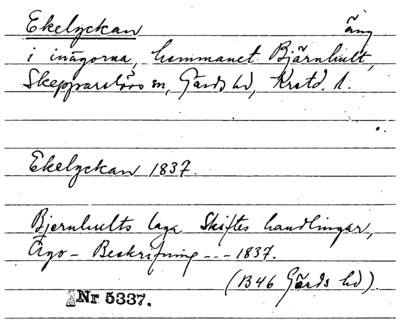 Ekelyckan äng
i inägorna, hemmanet Bjärnhult,
Skepparslövs sn, Gärds hd, Kratd. l.
Ekelyckan 1837.
Bjernhults laga Skiftes handlingar,
Ägo-Beskrifning --- 1837.
(B46 Gärds hd).
Nr 5337.